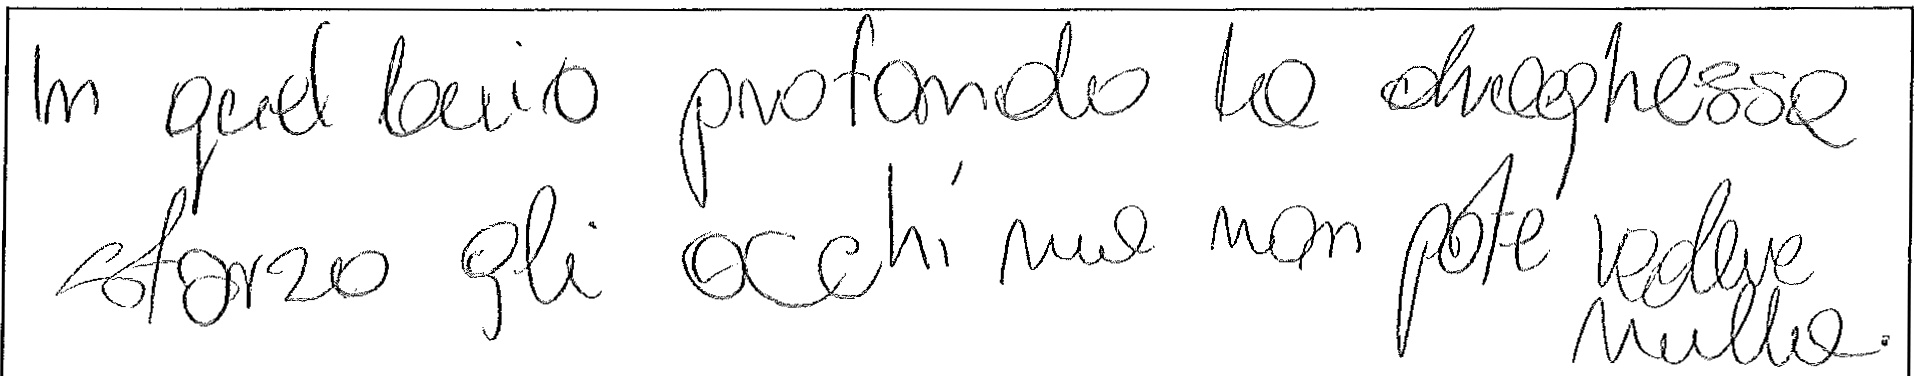 In quel buio profondo la draghessa
sforzo gli occhi ma non poté vedere
nulla.